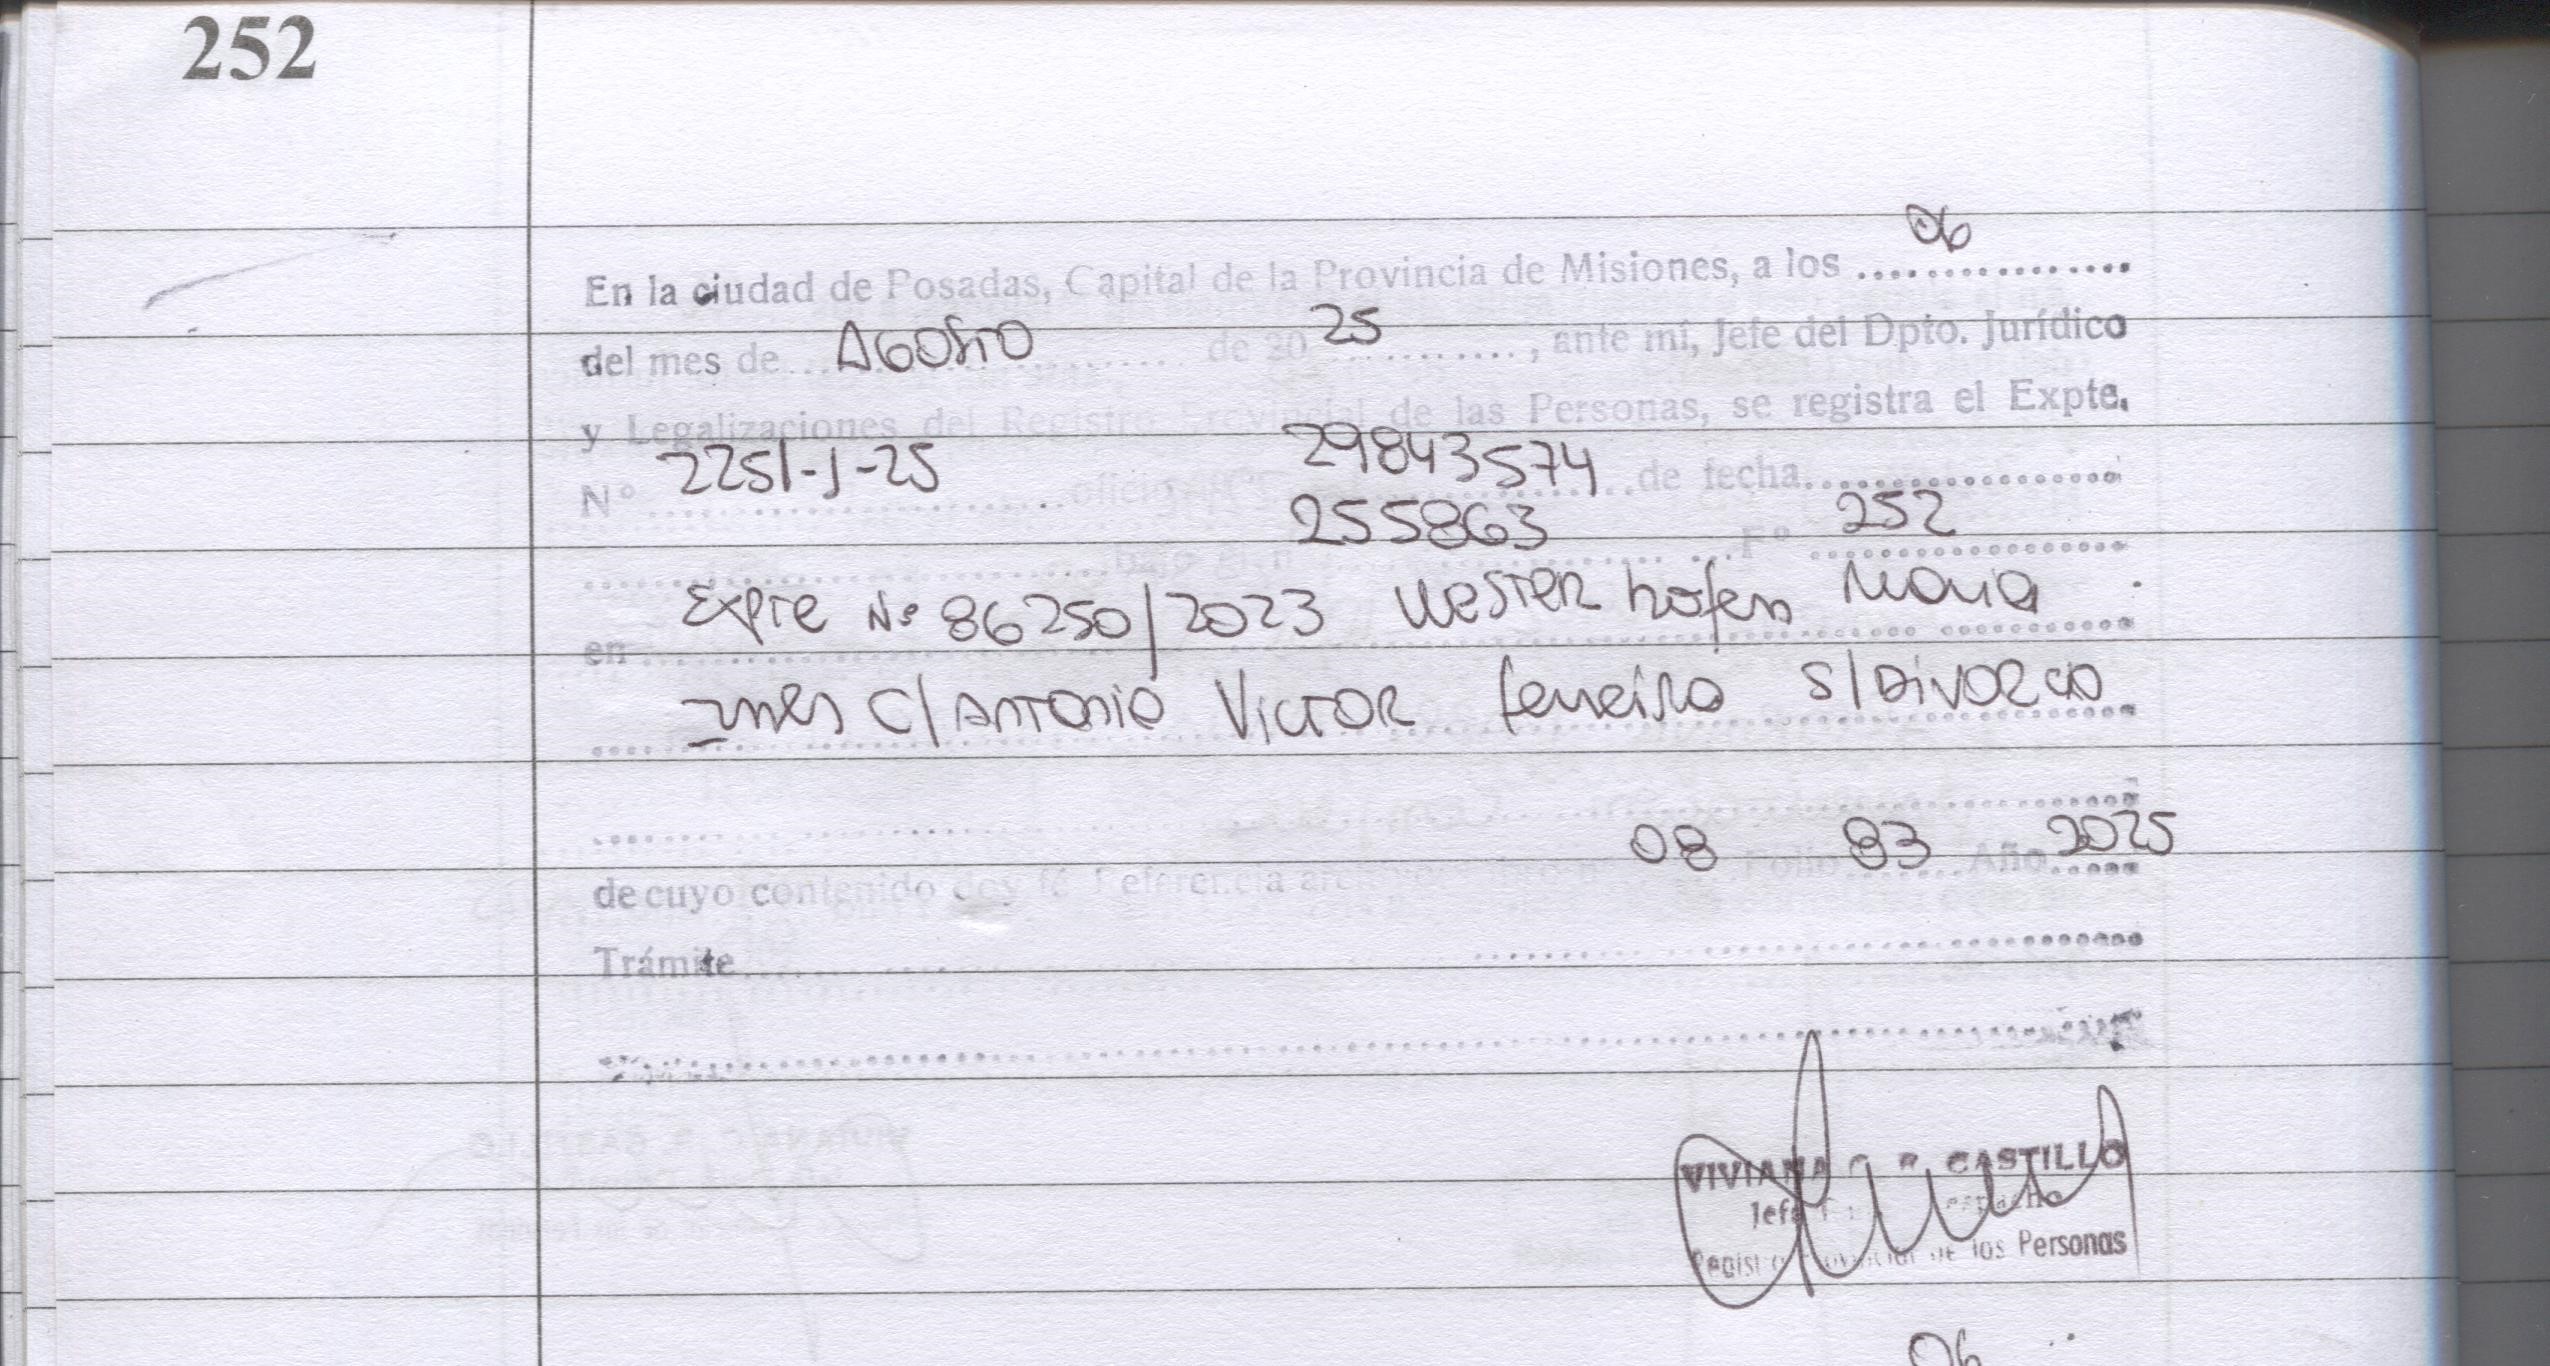 252
06
En la ciudad de Posadas, Capital de la Provincia de Misiones, a los
del mes de Agosto de 20 25, ante mí, Jefe del Dpto. Jurídico
y Legalizaciones del Registro Provincial de las Personas, se registra el Expte.
Nº 2251-J-25 oficio nº 29843574 de fecha
bajo el nº 255863 Fº 252
en Expte Nº 86250/2023 Westerhofen Maria
Ines C/ Antonio Victor Ferreira S/ Divorcio
08 83 2025
de cuyo contenido doy fé Referencia Folio Año
Trámite
VIVIANA CASTILLO
Jefa Despacho
Registro Provincial de las Personas
06